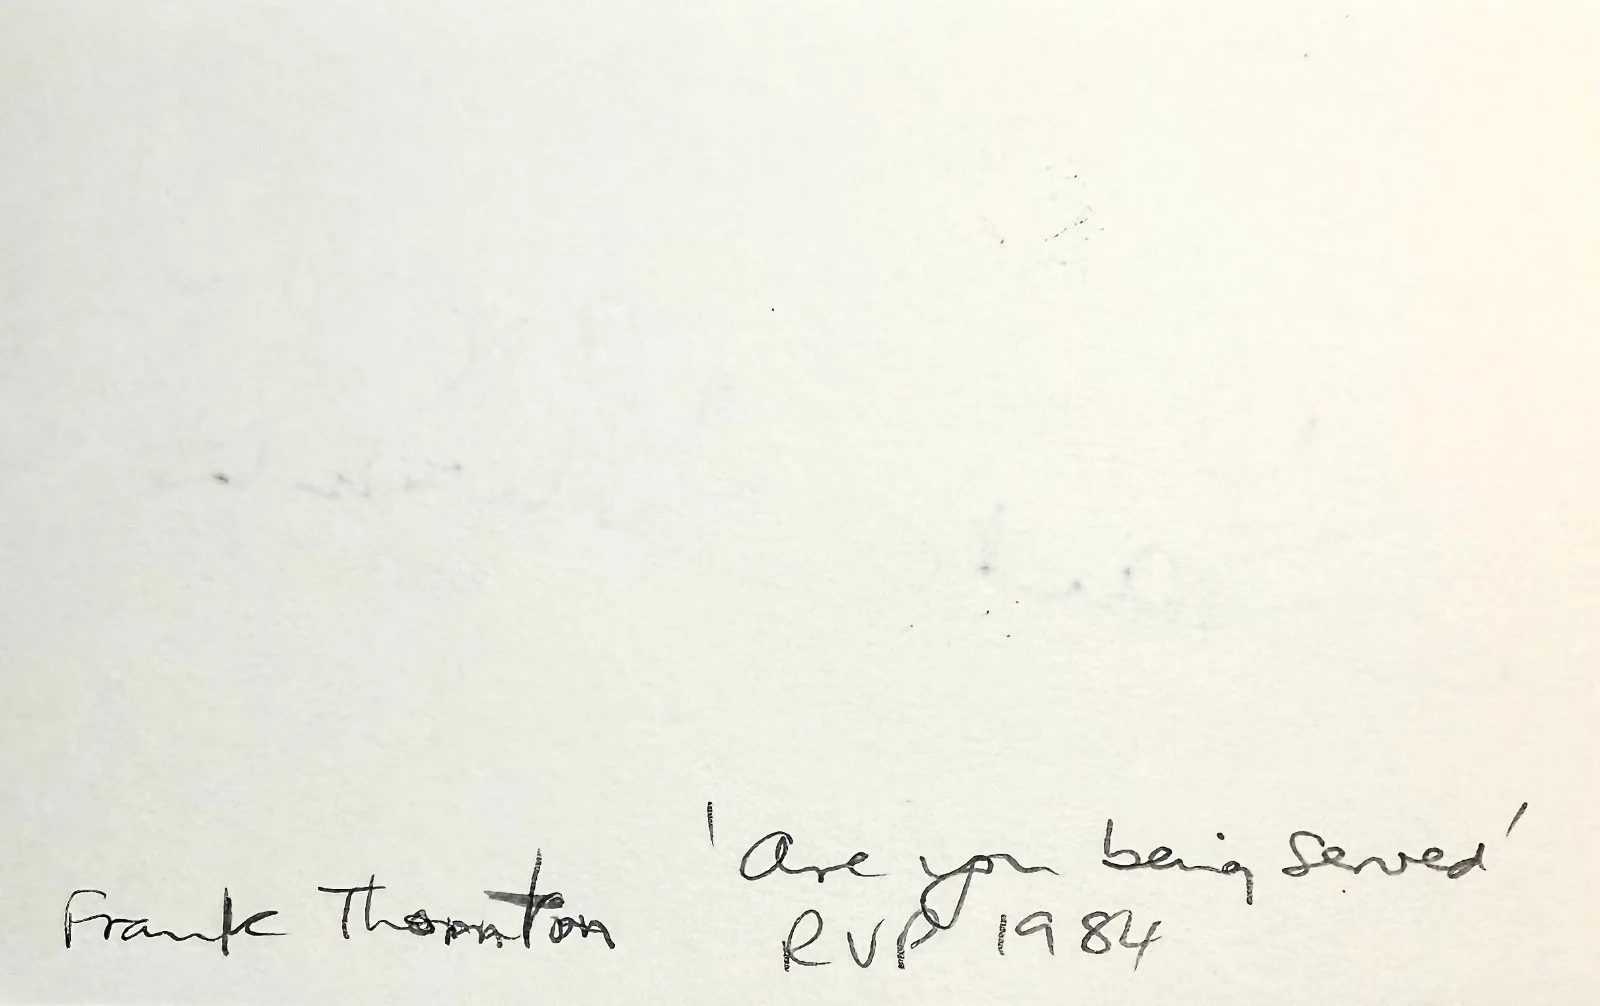 Frank Thornton
'Are you being Served'
RVP 1984